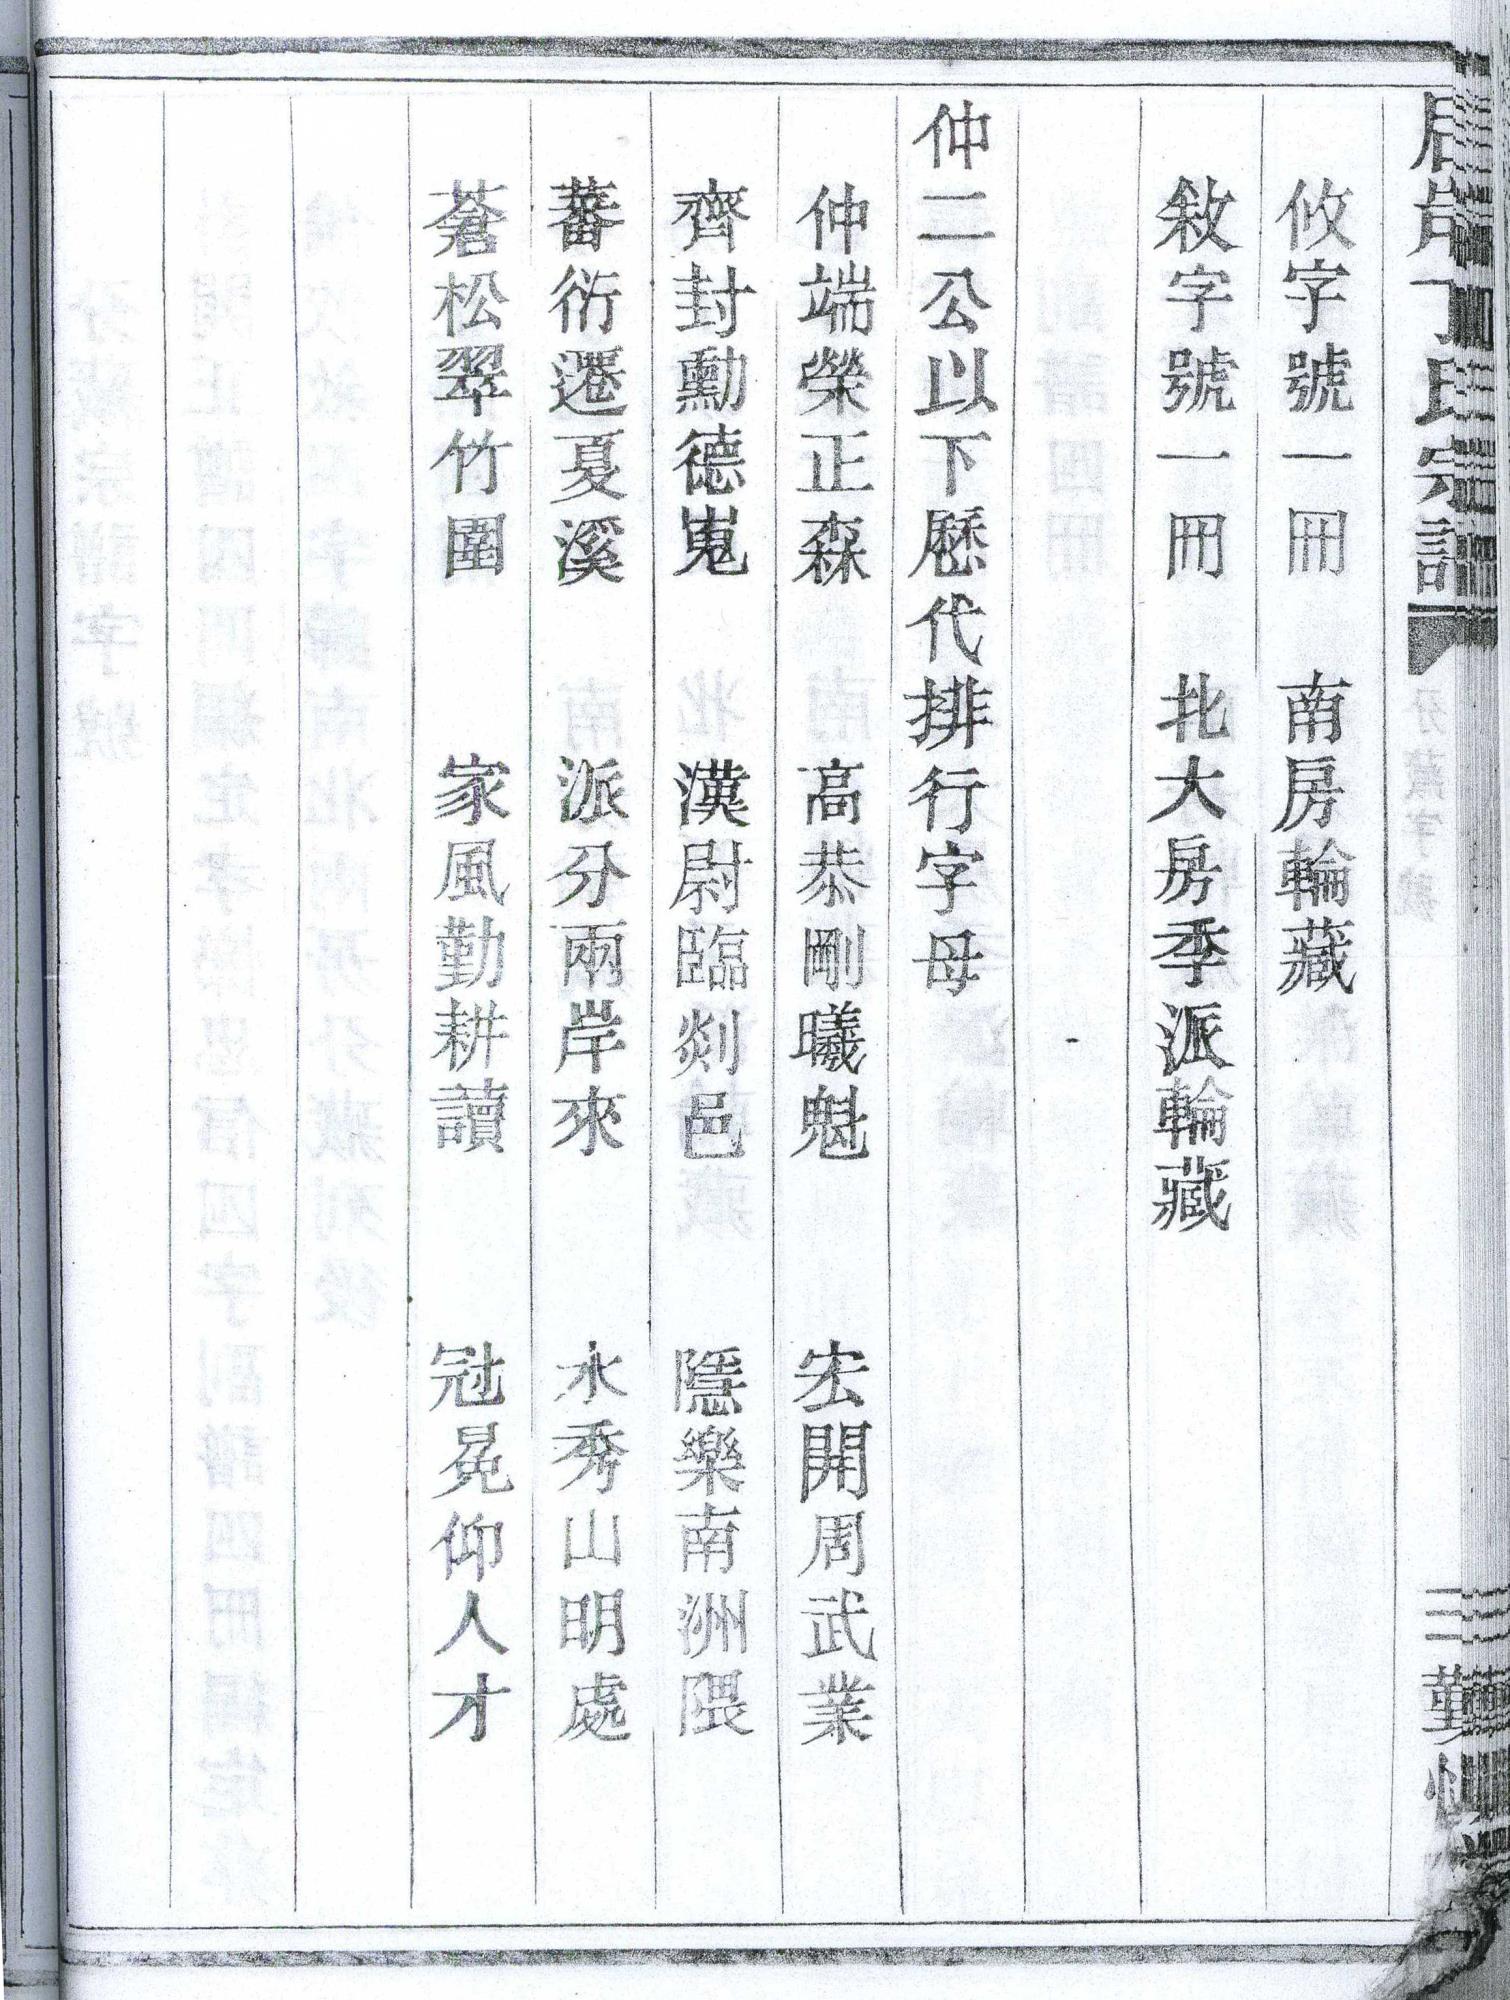 丁氏宗譜
分藏字號
攸字號一冊 南房輪藏
敘字號一冊 北大房季派輪藏
仲二公以下歷代排行字母
仲端榮正森 高恭剛曦魁 宏開周武業
齊封勳德嵬 漢尉臨剡邑 隱樂南洲隈
蕃衍遷夏溪 派分兩岸來 水秀山明處
蒼松翠竹圍 家風勤耕讀 冠冕仰人才